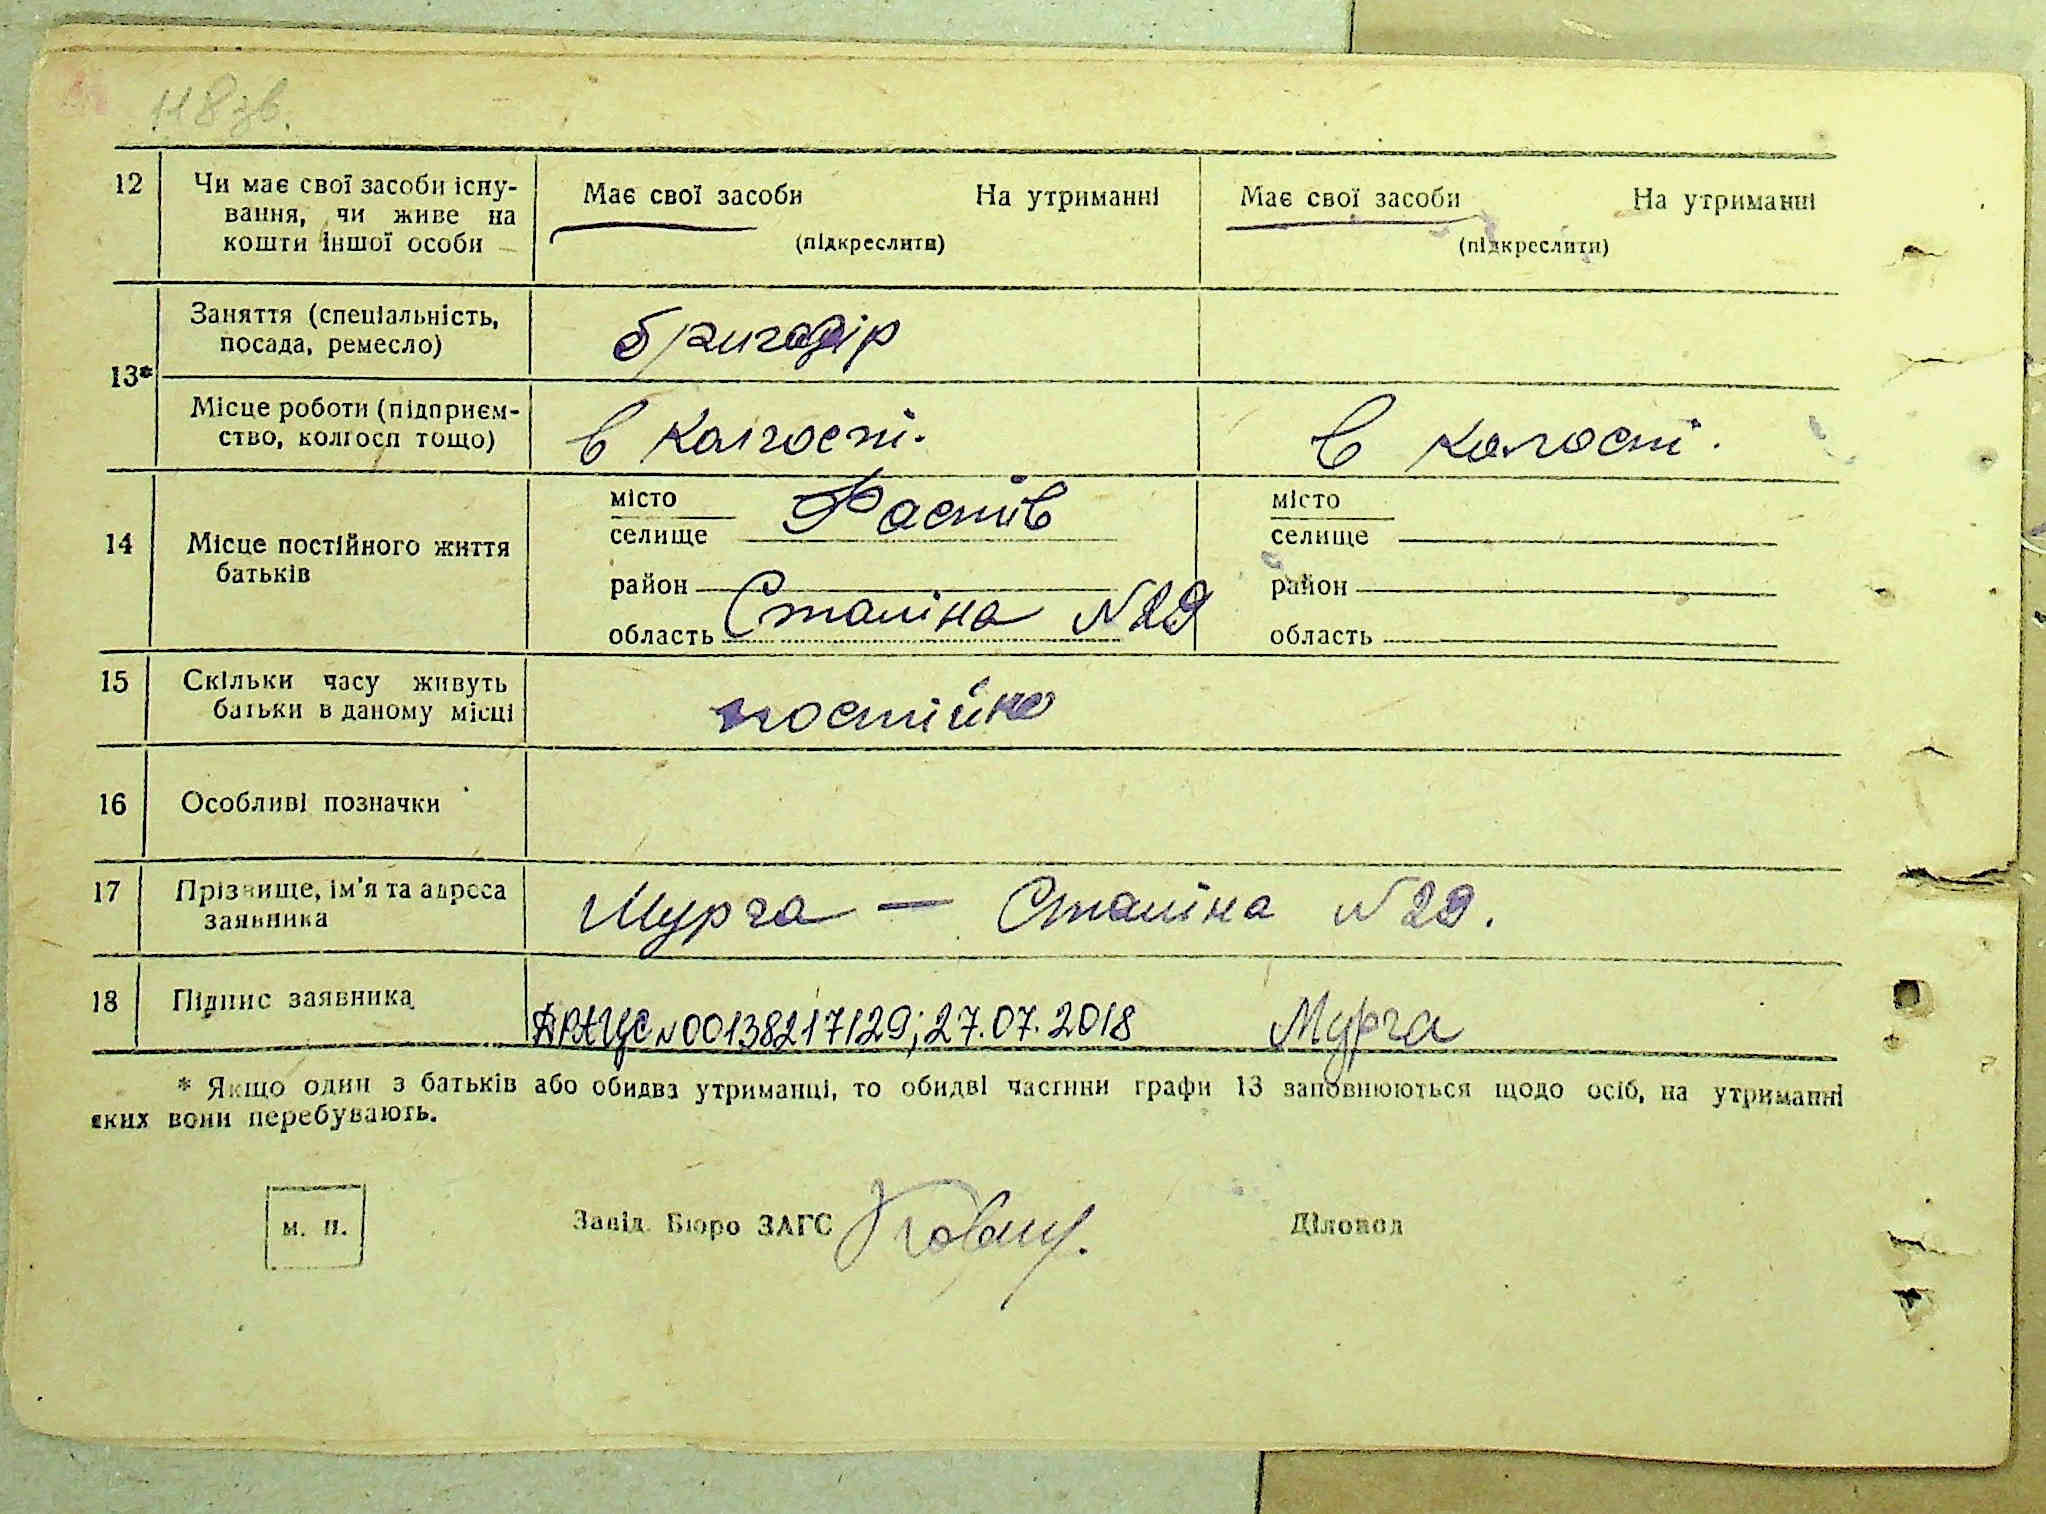 118 зв.
12 Чи має свої засоби існу- Має свої засоби На утриманні Має свої засоби На утриманні
вання, чи живе на
кошти іншої особи (підкреслити) (підкреслити)
Заняття (спеціальність, бригадір
посада, ремесло)
13*
Місце роботи (підприєм- в колгоспі. в колгоспі.
ство, колгосп тощо)
місто Фастів місто
14 Місце постійного життя селище селище
батьків
район район
область Сталіна N 29 область
15 Скільки часу живуть постійно
батьки в даному місці
16 Особливі позначки
17 Прізвище, ім'я та адреса Мурга — Сталіна N 29.
заявника
18 Підпис заявника ДРАЦС N 00138217129; 27.07.2018 Мурга
* Якщо один з батьків або обидва утриманці, то обидві частини графи 13 заповнюються щодо осіб, на утриманні
яких вони перебувають.
м. п. Завід. Бюро ЗАГС Діловод